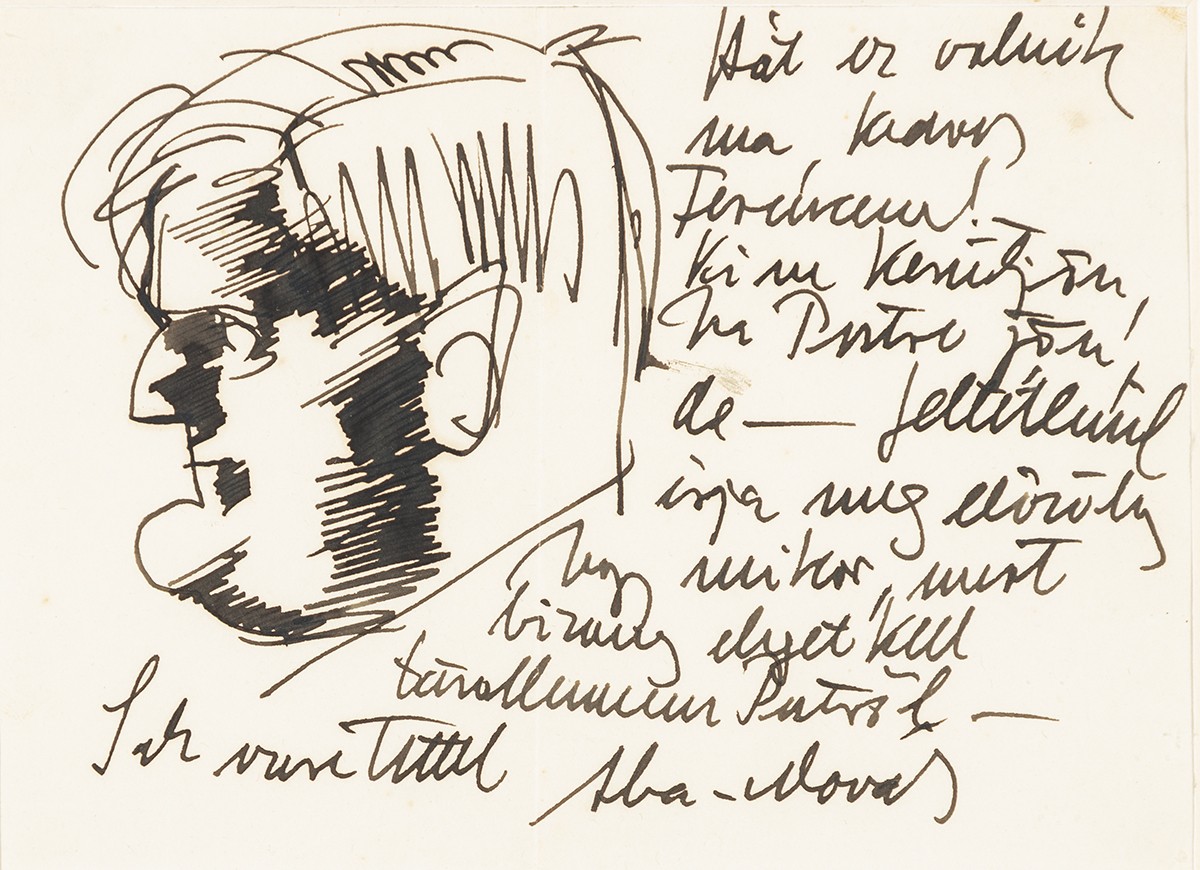 Hát ez volnék
ma, kedves
Ferencem!
Ki ne kerüljön,
ha Pestre jön!
de — feltétlenül
írja meg előzőleg
hogy mikor, mert
bizony elyet kell
távollennem Pestről —
Sok szeretettel Aba-Novák